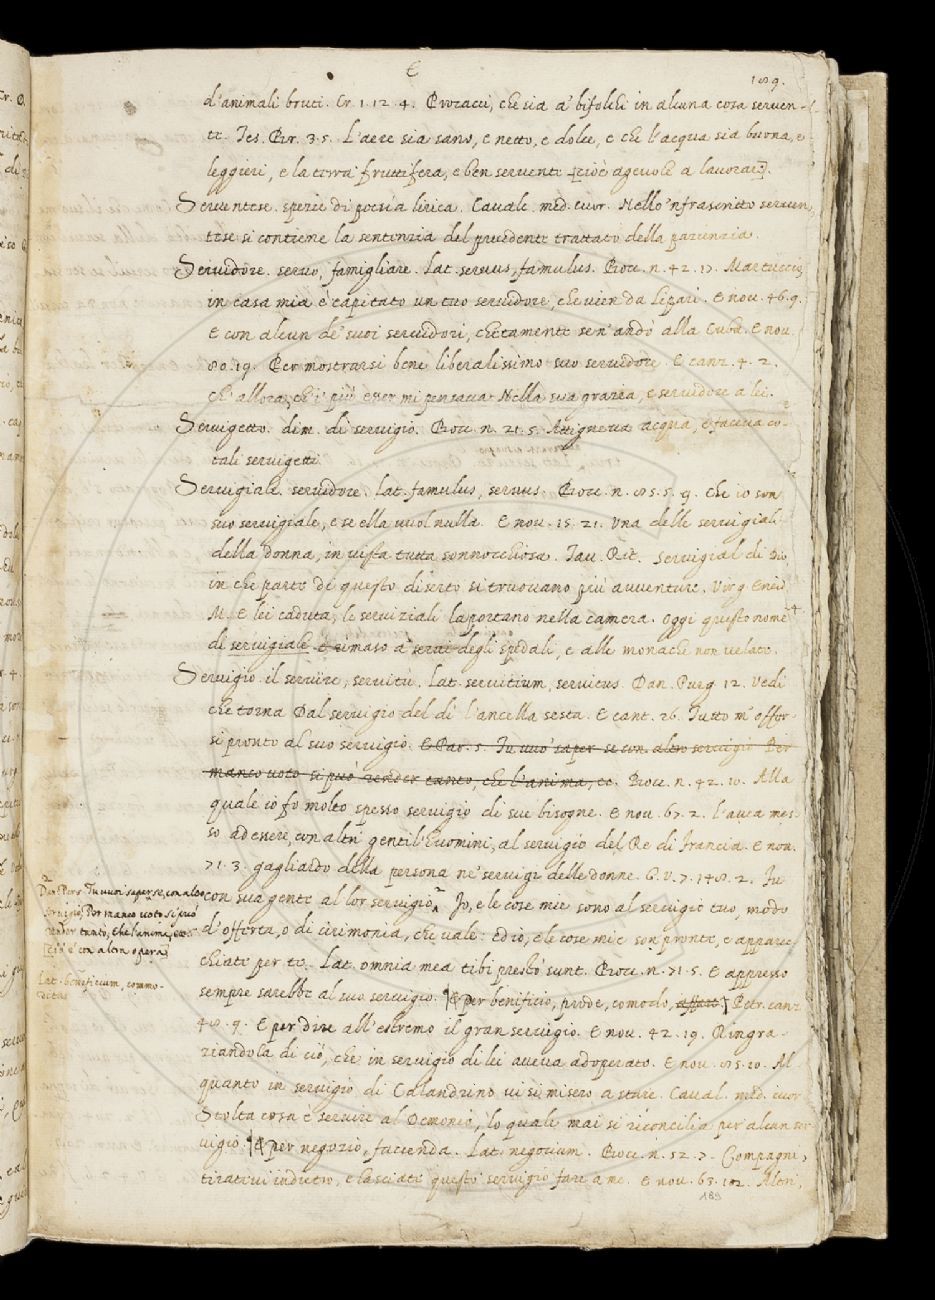 E
189.
d'animali bruti. Cr. 1. 12. 4. Procacci, che sia a' bifolchi in alcuna cosa serven-
te. Tes. Br. 3. 5. L'aere sia sano, e netto, e dolce, e che l'acqua sia buona, e
leggieri, e la terra fruttifera, e ben servente [cioè agevole a lavorar].
Serventese. spezie di poesia lirica. Cavalc. med. cuor. Nello 'nfrascritto serven-
tese si contiene la sentenzia del precedente trattato della pazienzia.
Servidore. servo, famigliare. Lat. servus, famulus. Bocc. n. 42. 17. Martuccio,
in casa mia è capitato un tuo servidore, che vien da Lipari. E nov. 46. 9.
E con alcun de' suoi servidori, chetamente sen' andò alla Cuba. E nov.
80. 19. Per mostrarsi bene liberalissimo suo servidore. E canz. 4. 2.
Ch' allora, ch' i' più esser mi pensava Nella sua grazia, e servidore a lei.
Servigetto. dim. di servigio. Bocc. n. 21. 5. Attigneva acqua, e faceva co-
tali servigetti.
Servigiale. servidore. Lat. famulus, servus. Bocc. n. 85. 5. 9. Che io son
suo servigiale, e se ella vuol nulla. E nov. 15. 21. Una delle servigiali
della donna, in vista tutta sonnocchiosa. Tav. Rit. Servigial di Dio,
in che parte di questo diserto si truovano più avventure. Virg. Eneid.
M. E lei caduta, le serviziali la portano nella camera. Oggi questo nome
di servigiale è rimaso a' servi degli spedali, e alle monache non velate.
Servigio. il servire, servitù. Lat. servitium, servitus. Dan. Purg. 12. Vedi
che torna Dal servigio del dì l'ancella sesta. E cant. 26. Tutto m' offer-
si pronto al suo servigio. E Par. 5. Tu vuo' saper se con altro servigio Per
manco voto si può render tanto, che l'anima, ec. Bocc. n. 42. 10. Alla
quale io fo molto spesso servigio di sue bisogne. E nov. 67. 2. L'avea mes-
so ad essere, con altri gentil' huomini, al servigio del Re di Francia. E nov.
71. 3. gagliardo della persona ne' servigi delle donne. G. V. 7. 148. 2. Fu
con sua gente al lor servigio. Io, e le cose mie sono al servigio tuo, modo
d' offerta, o di cirimonia, che vale: ed io, e le cose mie son pronte, e apparec-
chiate per te. Lat. omnia mea tibi presto sunt. Bocc. n. 71. 5. E appresso
sempre sarebbe al suo servigio. ¶ E per benificio, prode, comodo, affare. Petr. canz.
48. 9. E per dire all' estremo il gran servigio. E nov. 42. 19. Ringra-
ziandola di ciò, che in servigio di lei aveva adoperato. E nov. 85. 20. Al-
quanto in servigio di Calandrino vi si misero a stare. Caval. med. cuor.
Stolta cosa è servire al Demonio, lo quale mai si riconcilia per alcun ser-
vigio. ¶ E per negozio, faccenda. Lat. negotium. Bocc. n. 52. 7. Compagni,
tiratevi indietro, e lasciate questo servigio fare a me. E nov. 63. 12. Altri,
Dan. Par. 5 Tu vuoi saper se, con altro
servigio, Per manco voto si può
render tanto, che l'anima, ec.
[cioè con altra opera]
Lat. beneficium, commo-
ditas
189